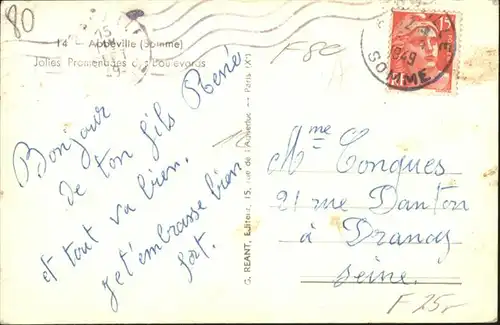 80
14 - Abbéville (Somme)
Jolies Promenades des Boulevards
F 80
A
15
1949
SOMME
Bonjour
de ton fils René
et tout va bien.
je t'embrasse bien
fort.
G. RÉANT, Editeur, 15, rue de l'Aqueduc — Paris (Xe)
Mme Congues
21 rue Danton
à Drancy
Seine.
F 25F